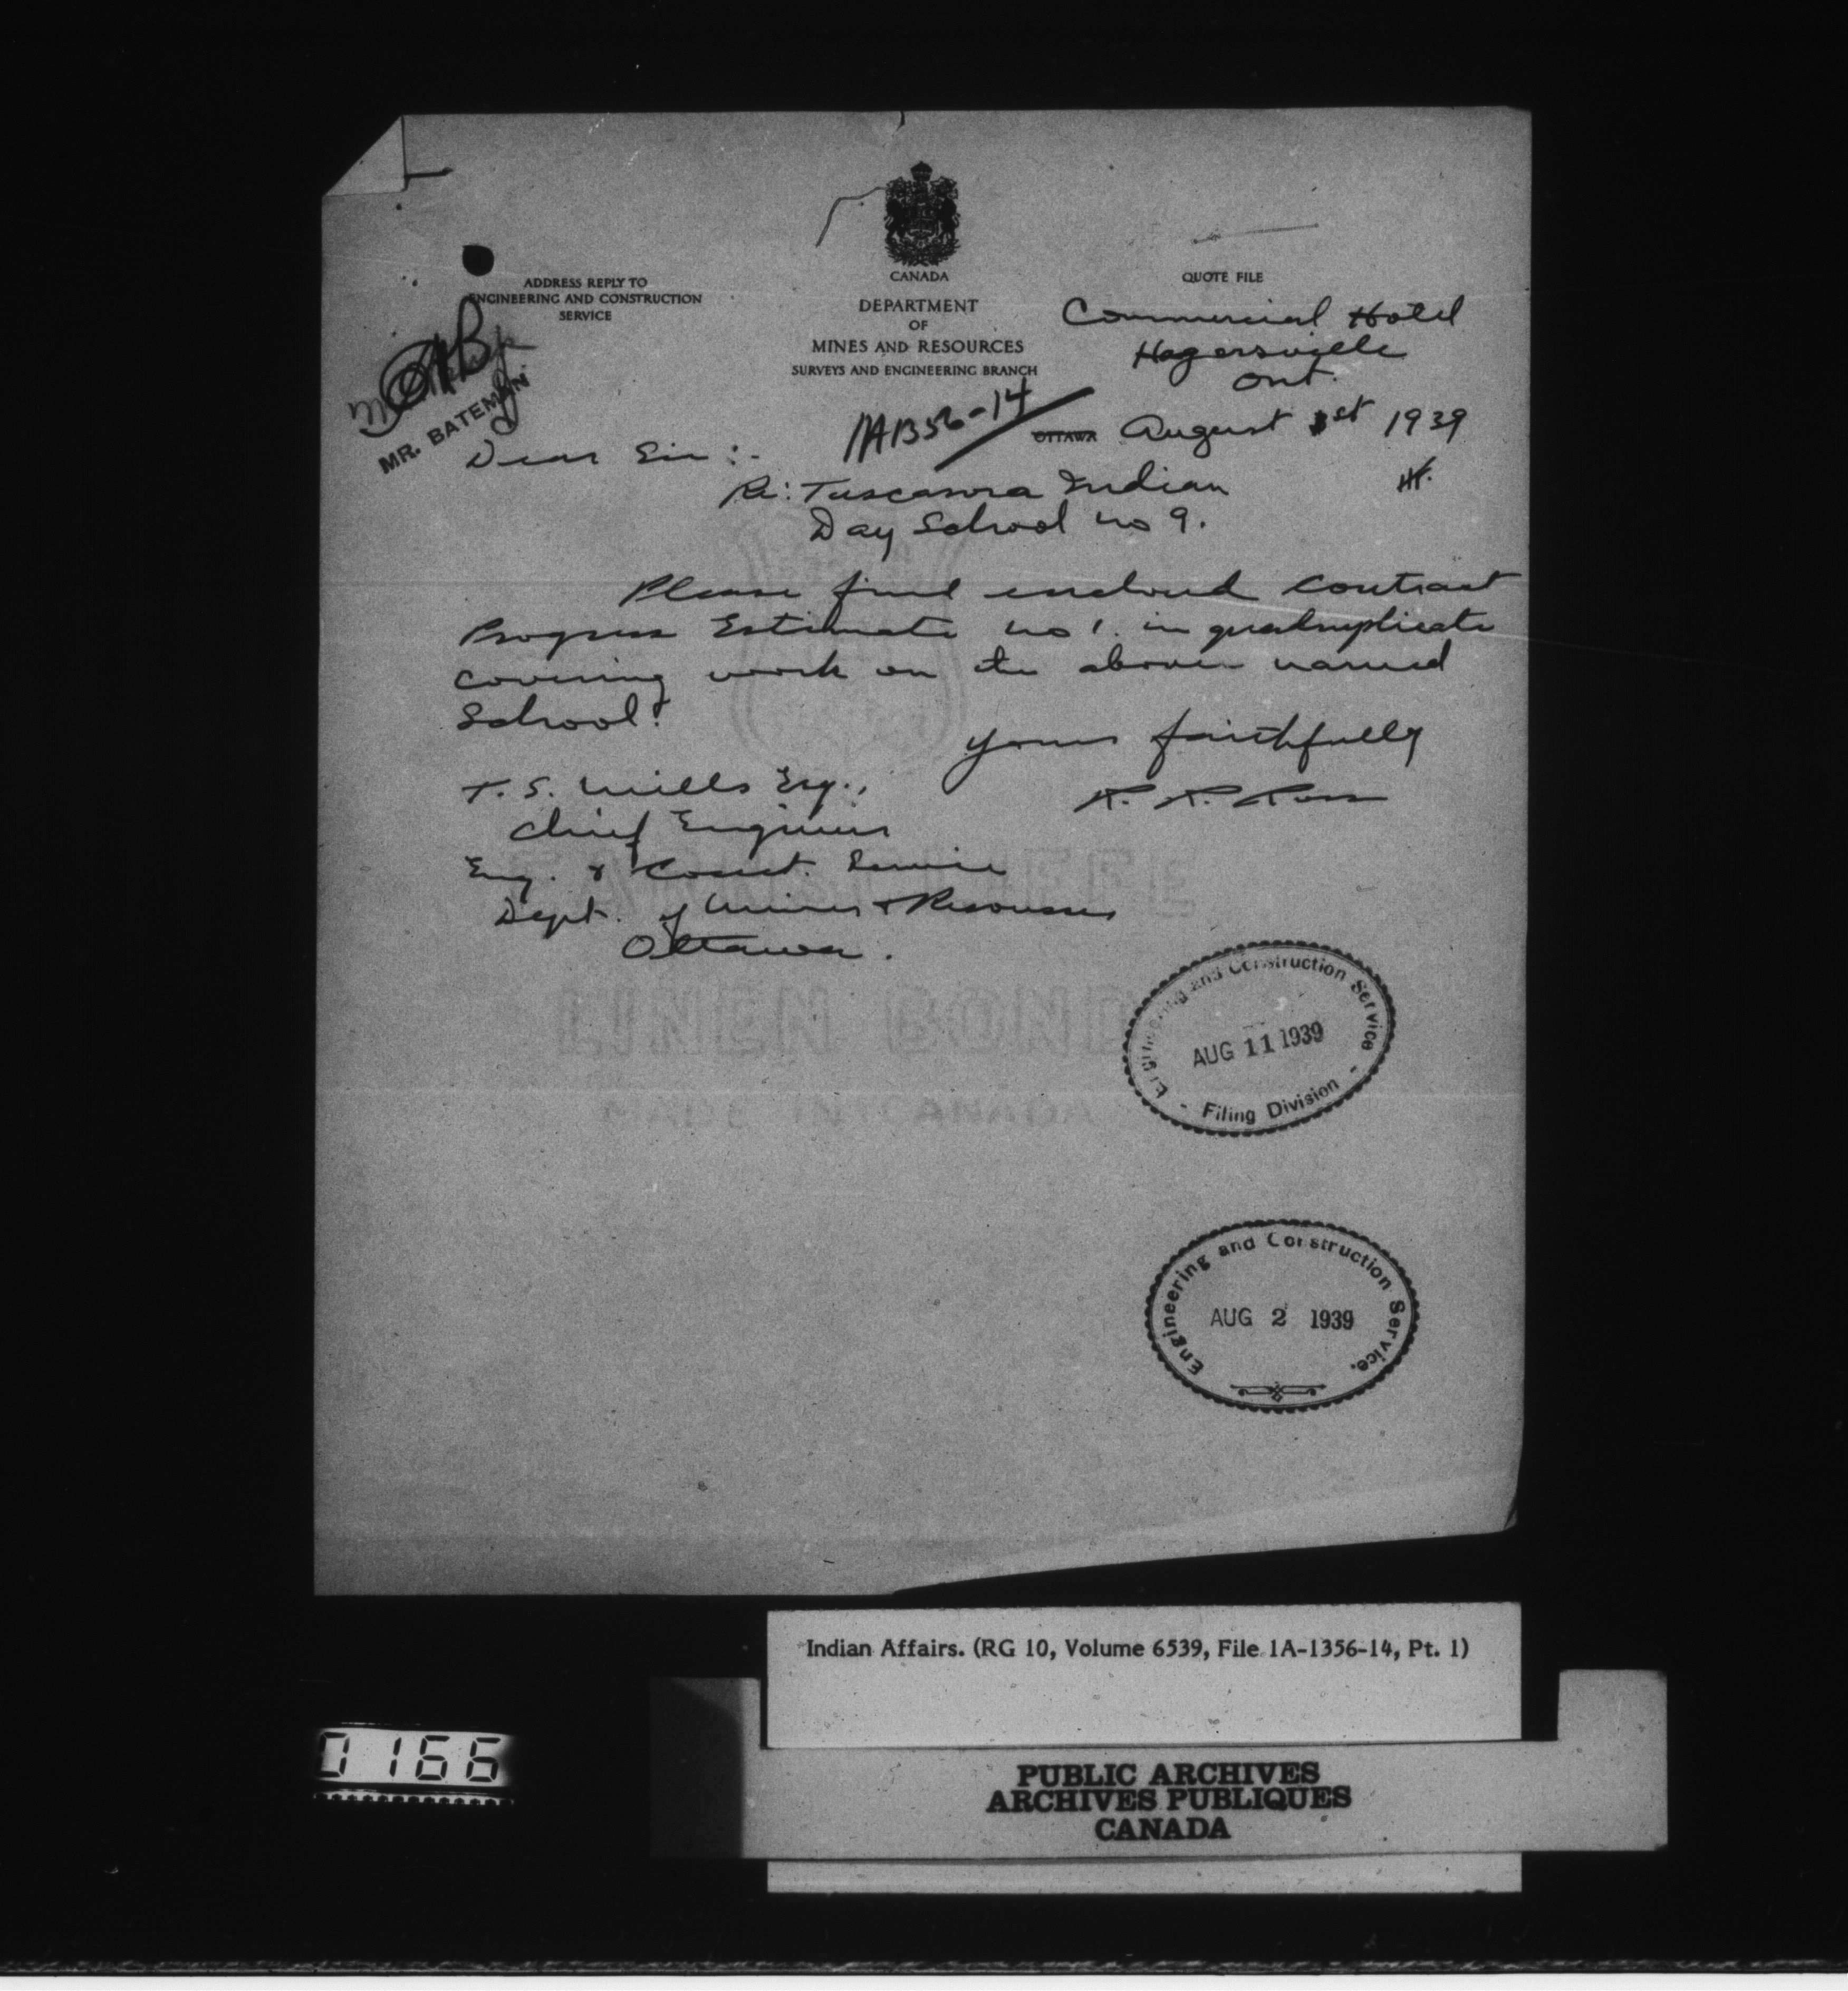 CANADA
ADDRESS REPLY TO
ENGINEERING AND CONSTRUCTION
SERVICE
DEPARTMENT
OF
MINES AND RESOURCES
SURVEYS AND ENGINEERING BRANCH
QUOTE FILE
Commercial Hotel
Hagersville
Ont.
MR. BATEMAN
1A1356-14
OTTAWA August 1st 1939
Dear Sir :-
Re: Tuscarora Indian
Day School no 9.
Please find enclosed contract
Progress Estimate no 1. in quadruplicate
covering work on the above named
School.
Yours faithfully
R. R. Ross
T. S. Mills Esq.,
Chief Engineer
Eng. & Const. Service
Dept. of Mines & Resources
Ottawa.
LINEN BOND
MADE IN CANADA
Engineering and Construction Service
AUG 11 1939
- Filing Division -
Engineering and Construction Service.
AUG 2 1939
Indian Affairs. (RG 10, Volume 6539, File 1A-1356-14, Pt. 1)
0166
PUBLIC ARCHIVES
ARCHIVES PUBLIQUES
CANADA